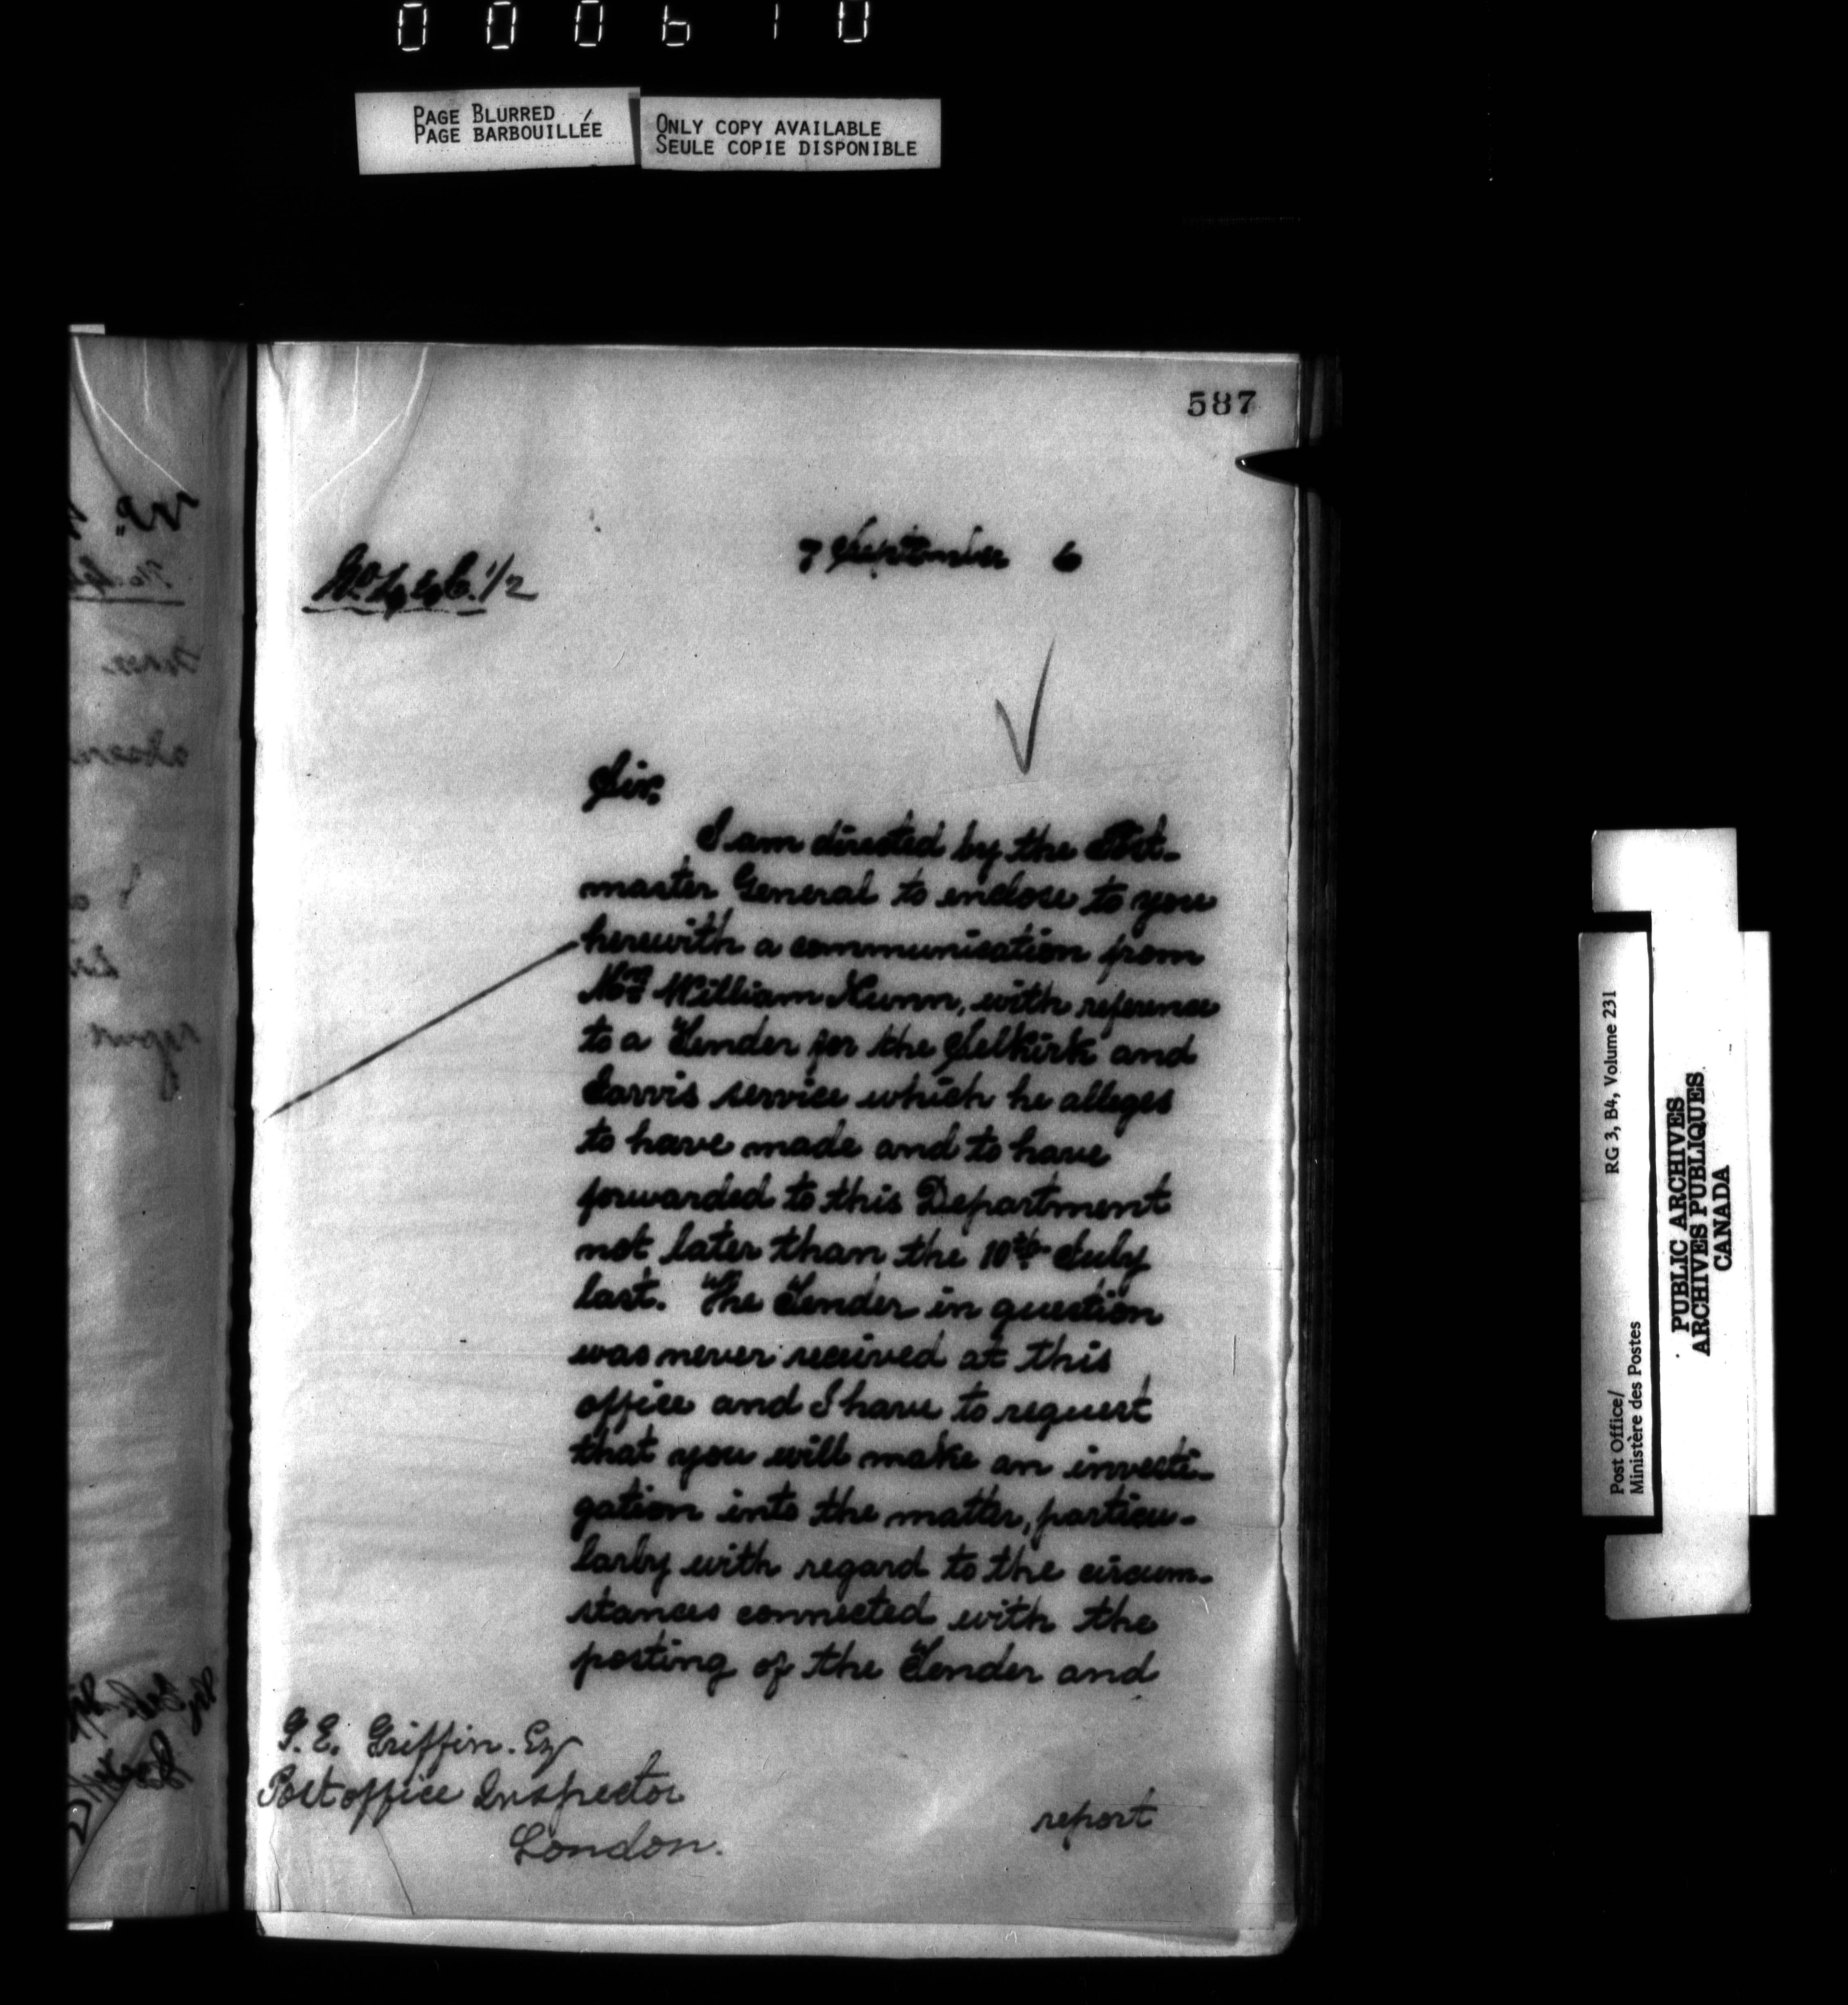 000610
PAGE BLURRED
PAGE BARBOUILLÉE
ONLY COPY AVAILABLE
SEULE COPIE DISPONIBLE
587
7 September 6
No. 1/2
Sir,
I am directed by the Post-
master General to enclose to you
herewith a communication from
William Nunn, with reference
to a Tender for the Selkirk and
Jarvis service which he alleges
to have made and to have
forwarded to this Department
not later than the 10th July
last. The Tender in question
was never received at this
office and I have to request
that you will make an investi-
gation into the matter, particu-
larly with regard to the circum-
stances connected with the
posting of the Tender and
report
G. E. Griffin. Esq
Post office Inspector
London.
Post Office/ RG 3, B4, Volume 231
Ministère des Postes
PUBLIC ARCHIVES
ARCHIVES PUBLIQUES
CANADA